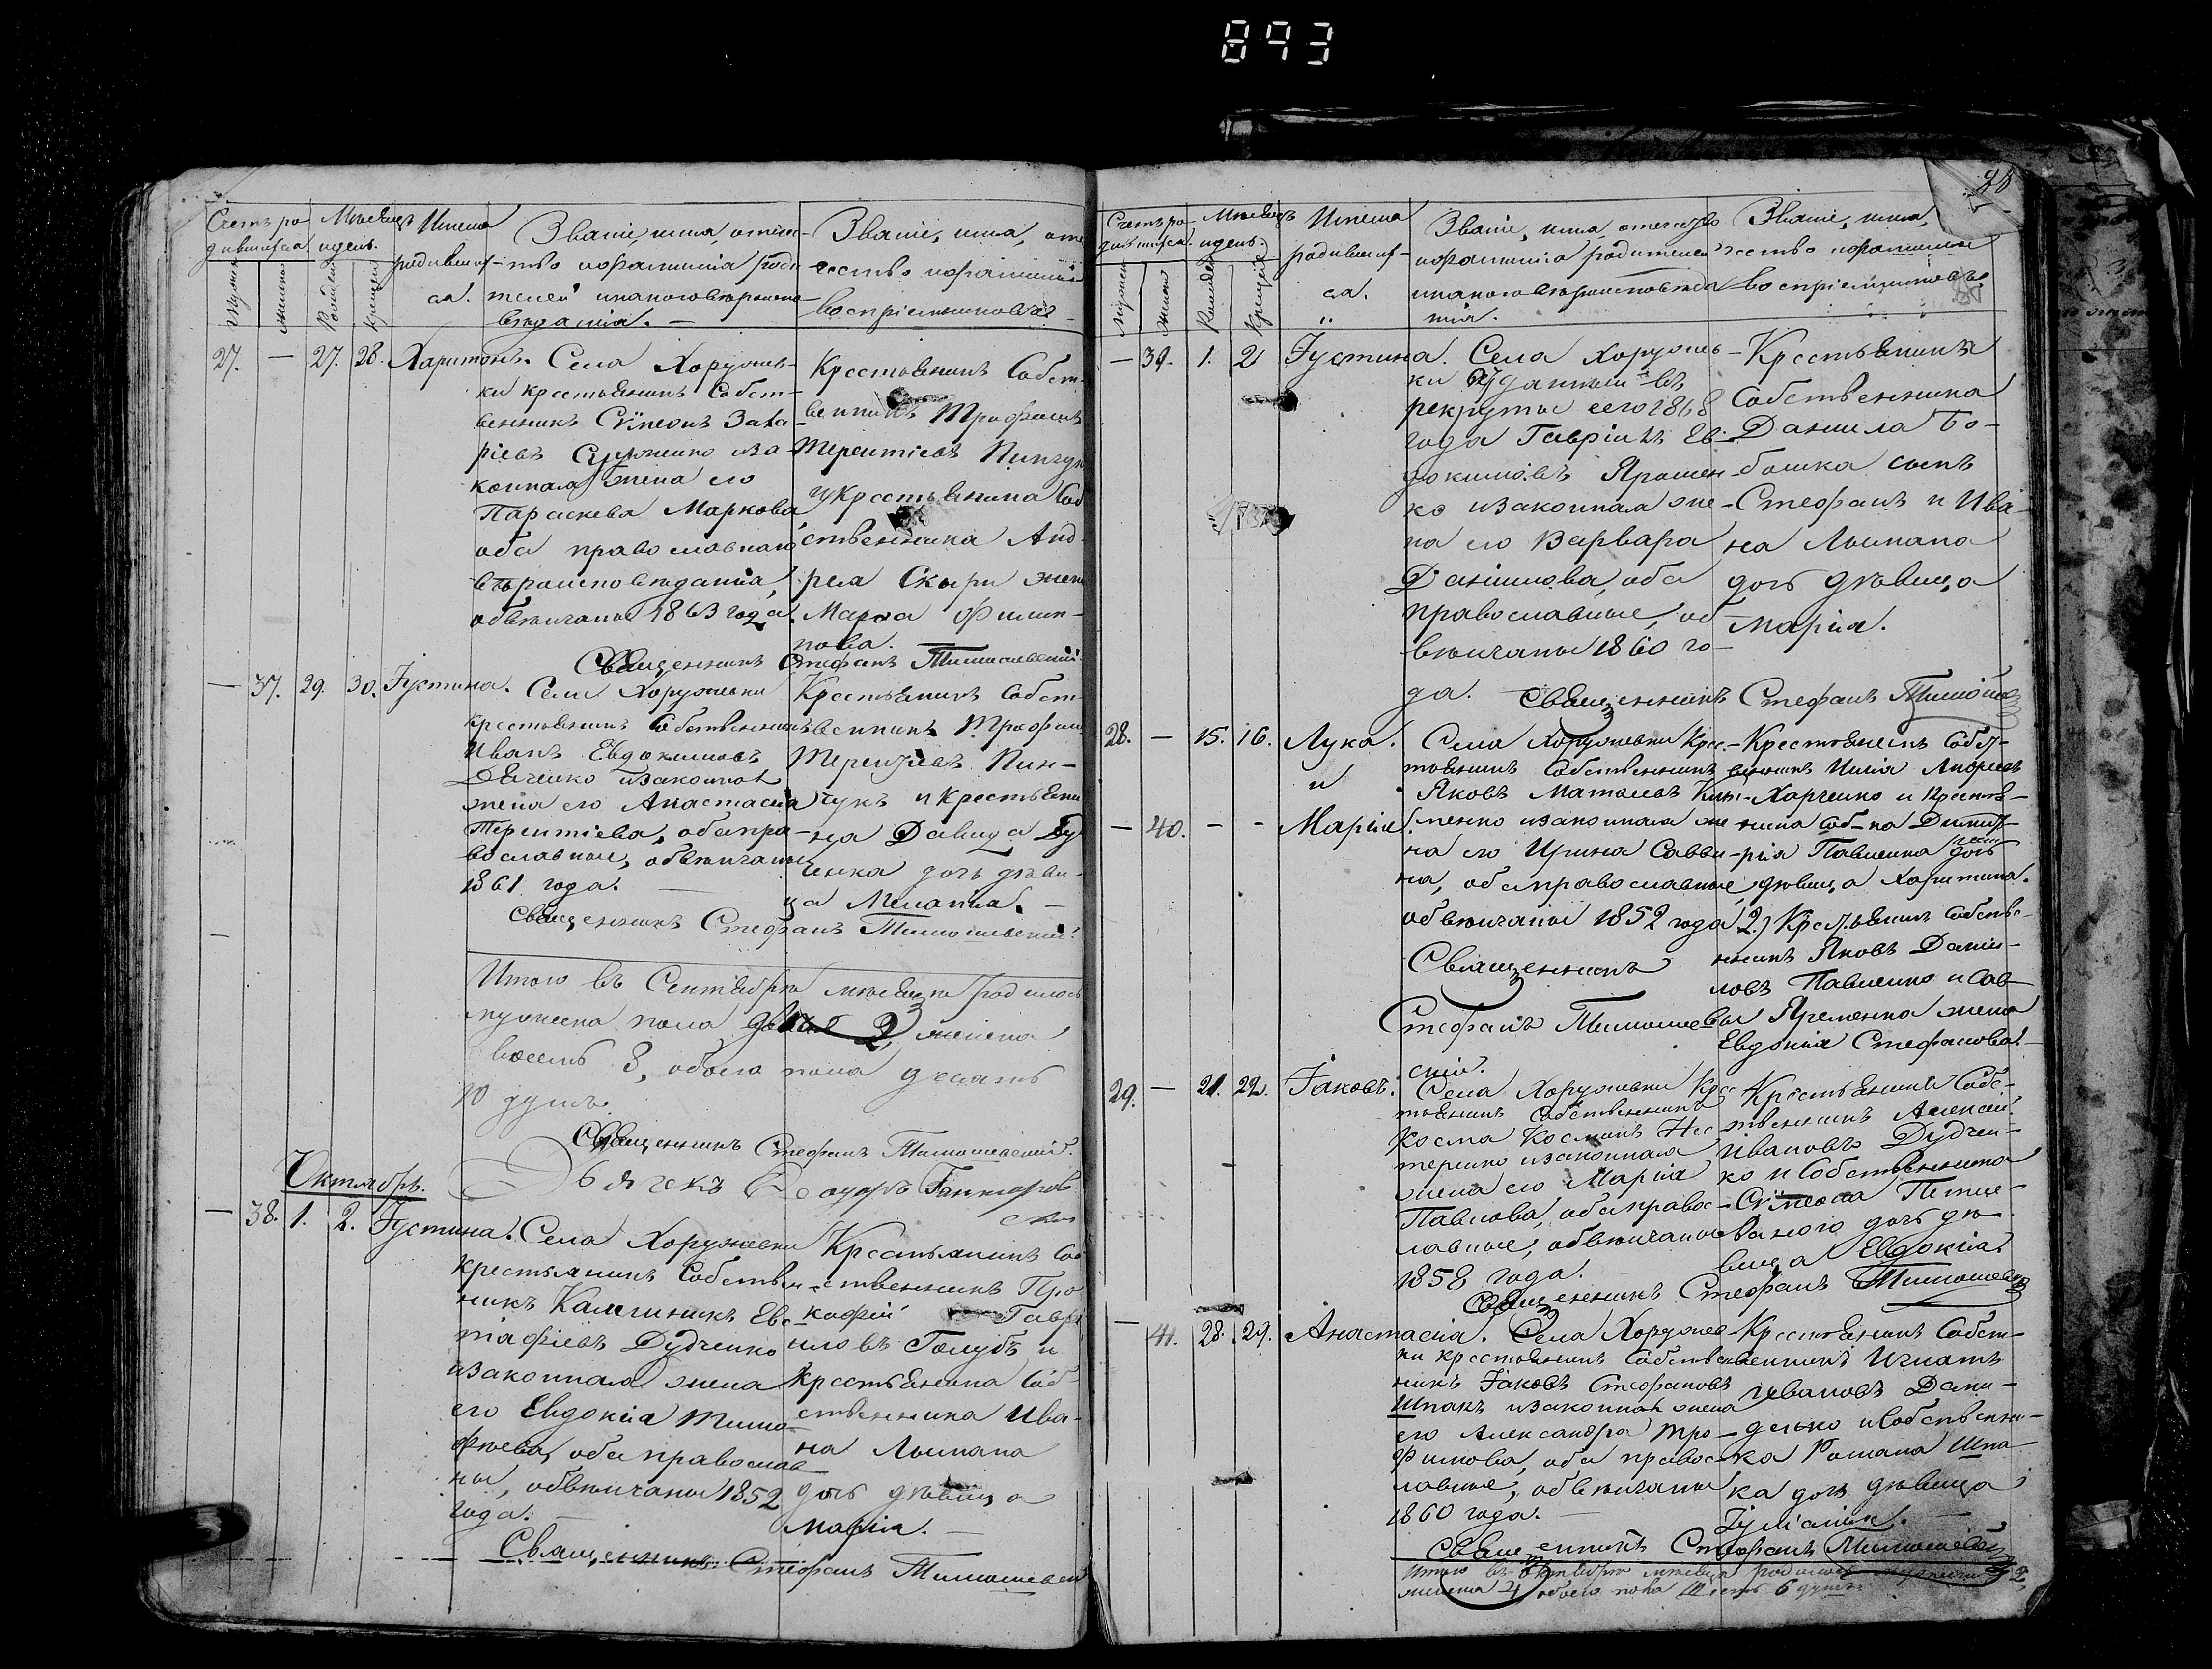 893
Счетъ ро-
дившихся.
Мѣсяцъ
и день.
Имена
родивших-
ся.
Званіе, имя, отече-
ство и фамилія роди-
телей и какого вѣроиспо-
вѣданія. —
Званіе, имя, оте
чество и фамилія
воспріемниковъ
27. — 27. 28. Харитонъ.
Села Хоружев-
ки крестьянинъ Собст-
венникъ Сѵмеонъ Заха-
ріевъ и за-
конная жена его
Параскева Маркова
оба православнаго
вѣроисповѣданія,
обвѣнчаны 1863 года.
Крестьянинъ Собст-
венникъ Трофимъ
Терентіевъ Пинчук
и крестьянина Соб
ственника Анд-
рея Скыри жена
Марѳа Филип-
пова.
Священникъ Стефанъ Тимошевскій.
— 37. 29. 30. Іустина.
Села Хоружевки
крестьянинъ Собственникъ
Иванъ Евдокимовъ
Дяченко и законная
жена его Анастасія
Терентіева, оба пра-
вославные, обвѣнчаны
1861 года. —
Крестьянинъ Собст
венникъ Трофим
Терентіевъ Пин-
чукъ и крестьяни
на Давида Бу
ценка дочь дѣви-
ца Меланія. —
Священникъ Стефанъ Тимошевскій.
Итого въ Сентябрѣ мѣсяцѣ родилось
мужеска пола два 2, женска
восемь 8, обоего пола десять
10 душъ.
Священникъ Стефанъ Тимошевскій.
Дьячекъ Ѳеодоръ
Октябрь.
— 38. 1. 2. Іустина.
Села Хоружевки
крестьянинъ Собствен-
никъ Каллиникъ Евс-
тафіевъ Дудченко
и законная жена
его Евдокія Тимо-
фѣева, оба православ
ны, обвѣнчаны 1852
года. —
Крестьянинъ Соб
ственникъ Про
кофій Гаврі
иловъ Голубъ и
крестьянина Соб
ственника Ива-
на Лымана
дочь дѣвица
Марія. —
Священникъ Стефанъ Тимошевскій
28
Счетъ ро-
дившихся.
Мѣсяцъ
и день.
Имена
родивших-
ся.
Званіе, имя, отечество
и фамилія родителей
и какого вѣроисповѣда
нія.
Званіе, имя,
чество и фамилія
воспріемниковъ
— 39. 1. 2 Іустина.
Села Хоружев-
ки отданный въ
рекруты сего 1868
года Гавріилъ Ев-
докимовъ Ярошен-
ко и законная же-
на его Варвара
Даніилова, оба
православные, об-
вѣнчаны 1860 го-
да.
Крестьянина
Собственника
Данила Бо-
башка сынъ
Стефанъ и Ива-
на Лымана
дочь дѣвица
Марія.
Священникъ Стефанъ Тимоше
28. — 15. 16. Лука.
и
— 40. - - Марія.
Села Хоружевки Крес-
тьянинъ Собственникъ
Яковъ Матѳіевъ
и законная же
на его Ирина Савви-
на, оба православные,
обвѣнчаны 1852 года
Крестьянинъ Собст-
венникъ Илія Андреевъ
Харченко и Крестья-
нина Соб-ка Димит-
рія Павленка дочь
дѣвица Харитина.
2.) Крестьянинъ Собстве-
нникъ Яковъ Даніи-
ловъ Павленко и Сав-
вы Яременка жена
Евдокія Стефанова.
Священникъ
Стефанъ Тимошев
скій.
29. — 21. 22. Іаковъ.
Села Хоружевки Крес
тьянинъ Собственникъ
Косма Косминъ Нес
теренко и законная
жена его Марія
Павлова, оба правос-
лавные, обвѣнчаны
1858 года.
Крестьянинъ Собс-
твенникъ Алексѣй
Ивановъ Дудчен-
ко и Собственника
Сѵмеона
дочь дѣ-
вица Евдокія.
Священникъ Стефанъ Тимошев
— 41. 28. 29. Анастасія.
Села Хоружев-
ки крестьянинъ Собствен-
никъ Іаковъ Стефановъ
Шпакъ и законная жена
его Александра Тро-
фимова, оба правос-
лавные, обвѣнчаны
1860 года. —
Крестьянинъ Собст-
венникъ Игнатъ
Ивановъ Дани-
делько и Собственни-
ка Романа Шпа-
ка дочь дѣвица
Іуліанія. —
Священникъ Стефанъ Тимошевскій
Итого въ Октябрѣ мѣсяцѣ родилось мужеска 2,
женска 4 обоего пола шесть 6 душъ.